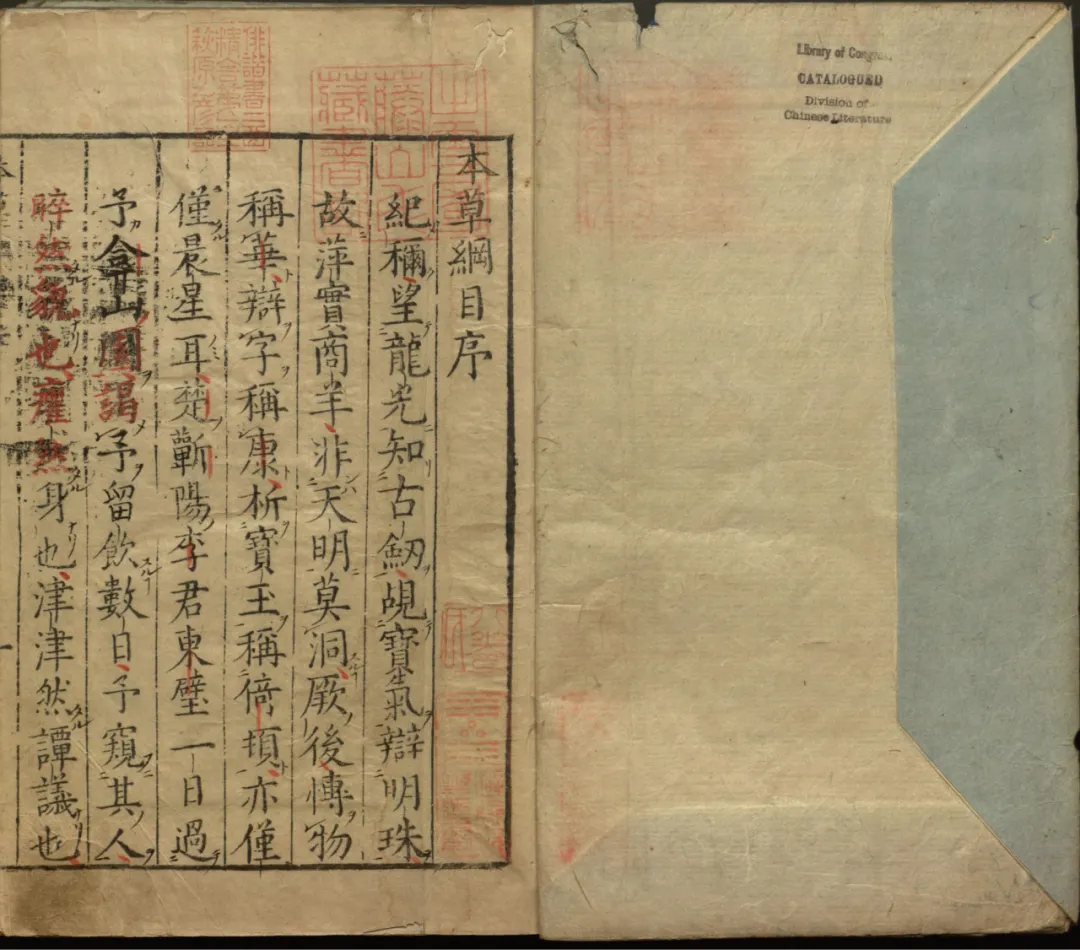 本草綱目序
紀稱望龍光知古劒覘寶氣辯明珠
故萍實商羊非天明莫洞厥後愽物
稱華辯字稱康析寶玉稱倚頓亦僅
僅晨星耳楚蘄陽李君東璧一日過
予弇山園謁予留飲數日予窺其人
睟然貌也癯然身也津津然譚議也
Library of Congress
CATALOGUED
Division of
Chinese Literature